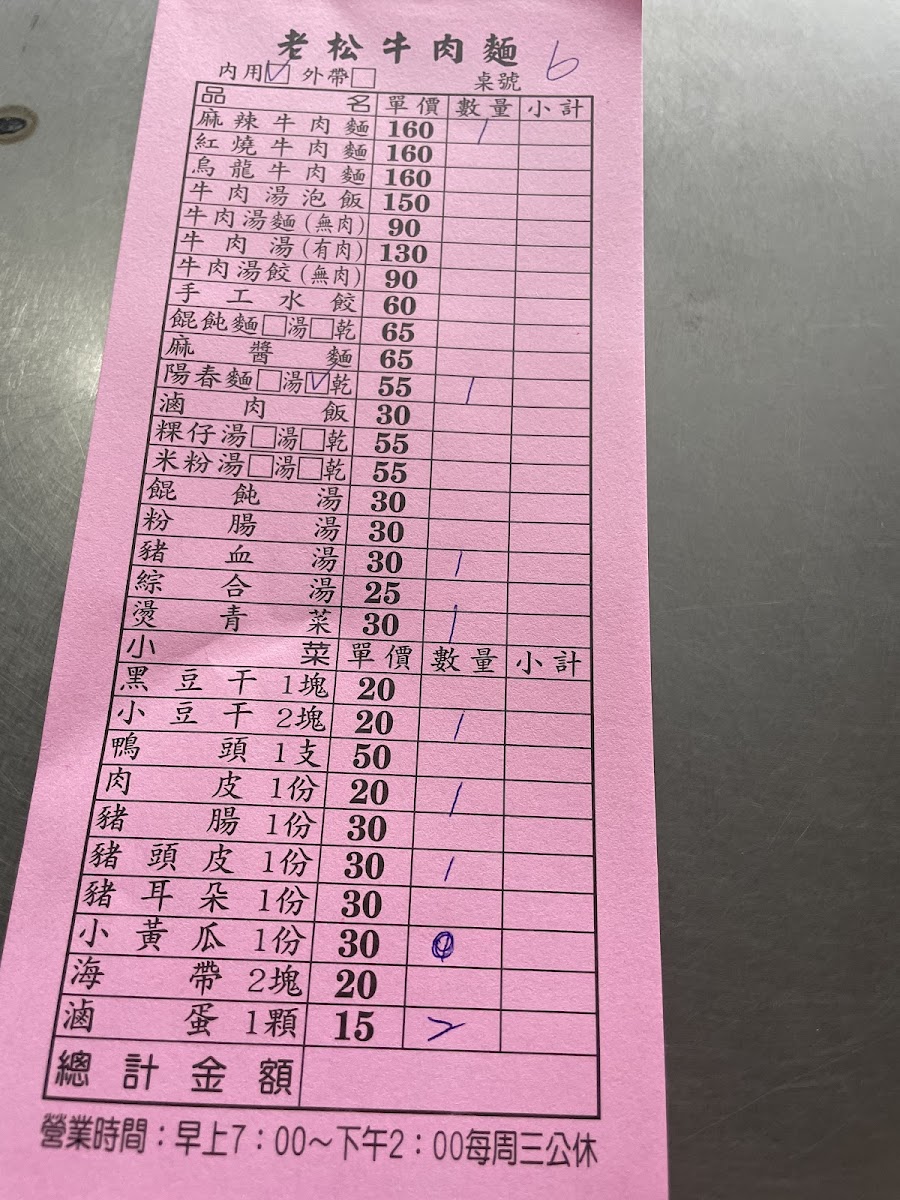 老松牛肉麵
內用☑ 外帶☐ 桌號 6
品名 單價 數量 小計
麻辣牛肉麵 160 1
紅燒牛肉麵 160
烏龍牛肉麵 160
牛肉湯泡飯 150
牛肉湯麵(無肉) 90
牛肉湯(有肉) 130
牛肉湯餃(無肉) 90
手工水餃 60
餛飩麵☐湯☐乾 65
麻醬麵 65
陽春麵☐湯☑乾 55 1
滷肉飯 30
粿仔湯☐湯☐乾 55
米粉湯☐湯☐乾 55
餛飩湯 30
粉腸湯 30
豬血湯 30 1
綜合湯 25
燙青菜 30 1
小菜 單價 數量 小計
黑豆干1塊 20
小豆干2塊 20 1
鴨頭1支 50
肉皮1份 20 1
豬腸1份 30
豬頭皮1份 30 1
豬耳朵1份 30
小黃瓜1份 30
海帶2塊 20
滷蛋1顆 15 2
總計金額
營業時間：早上7：00～下午2：00每周三公休